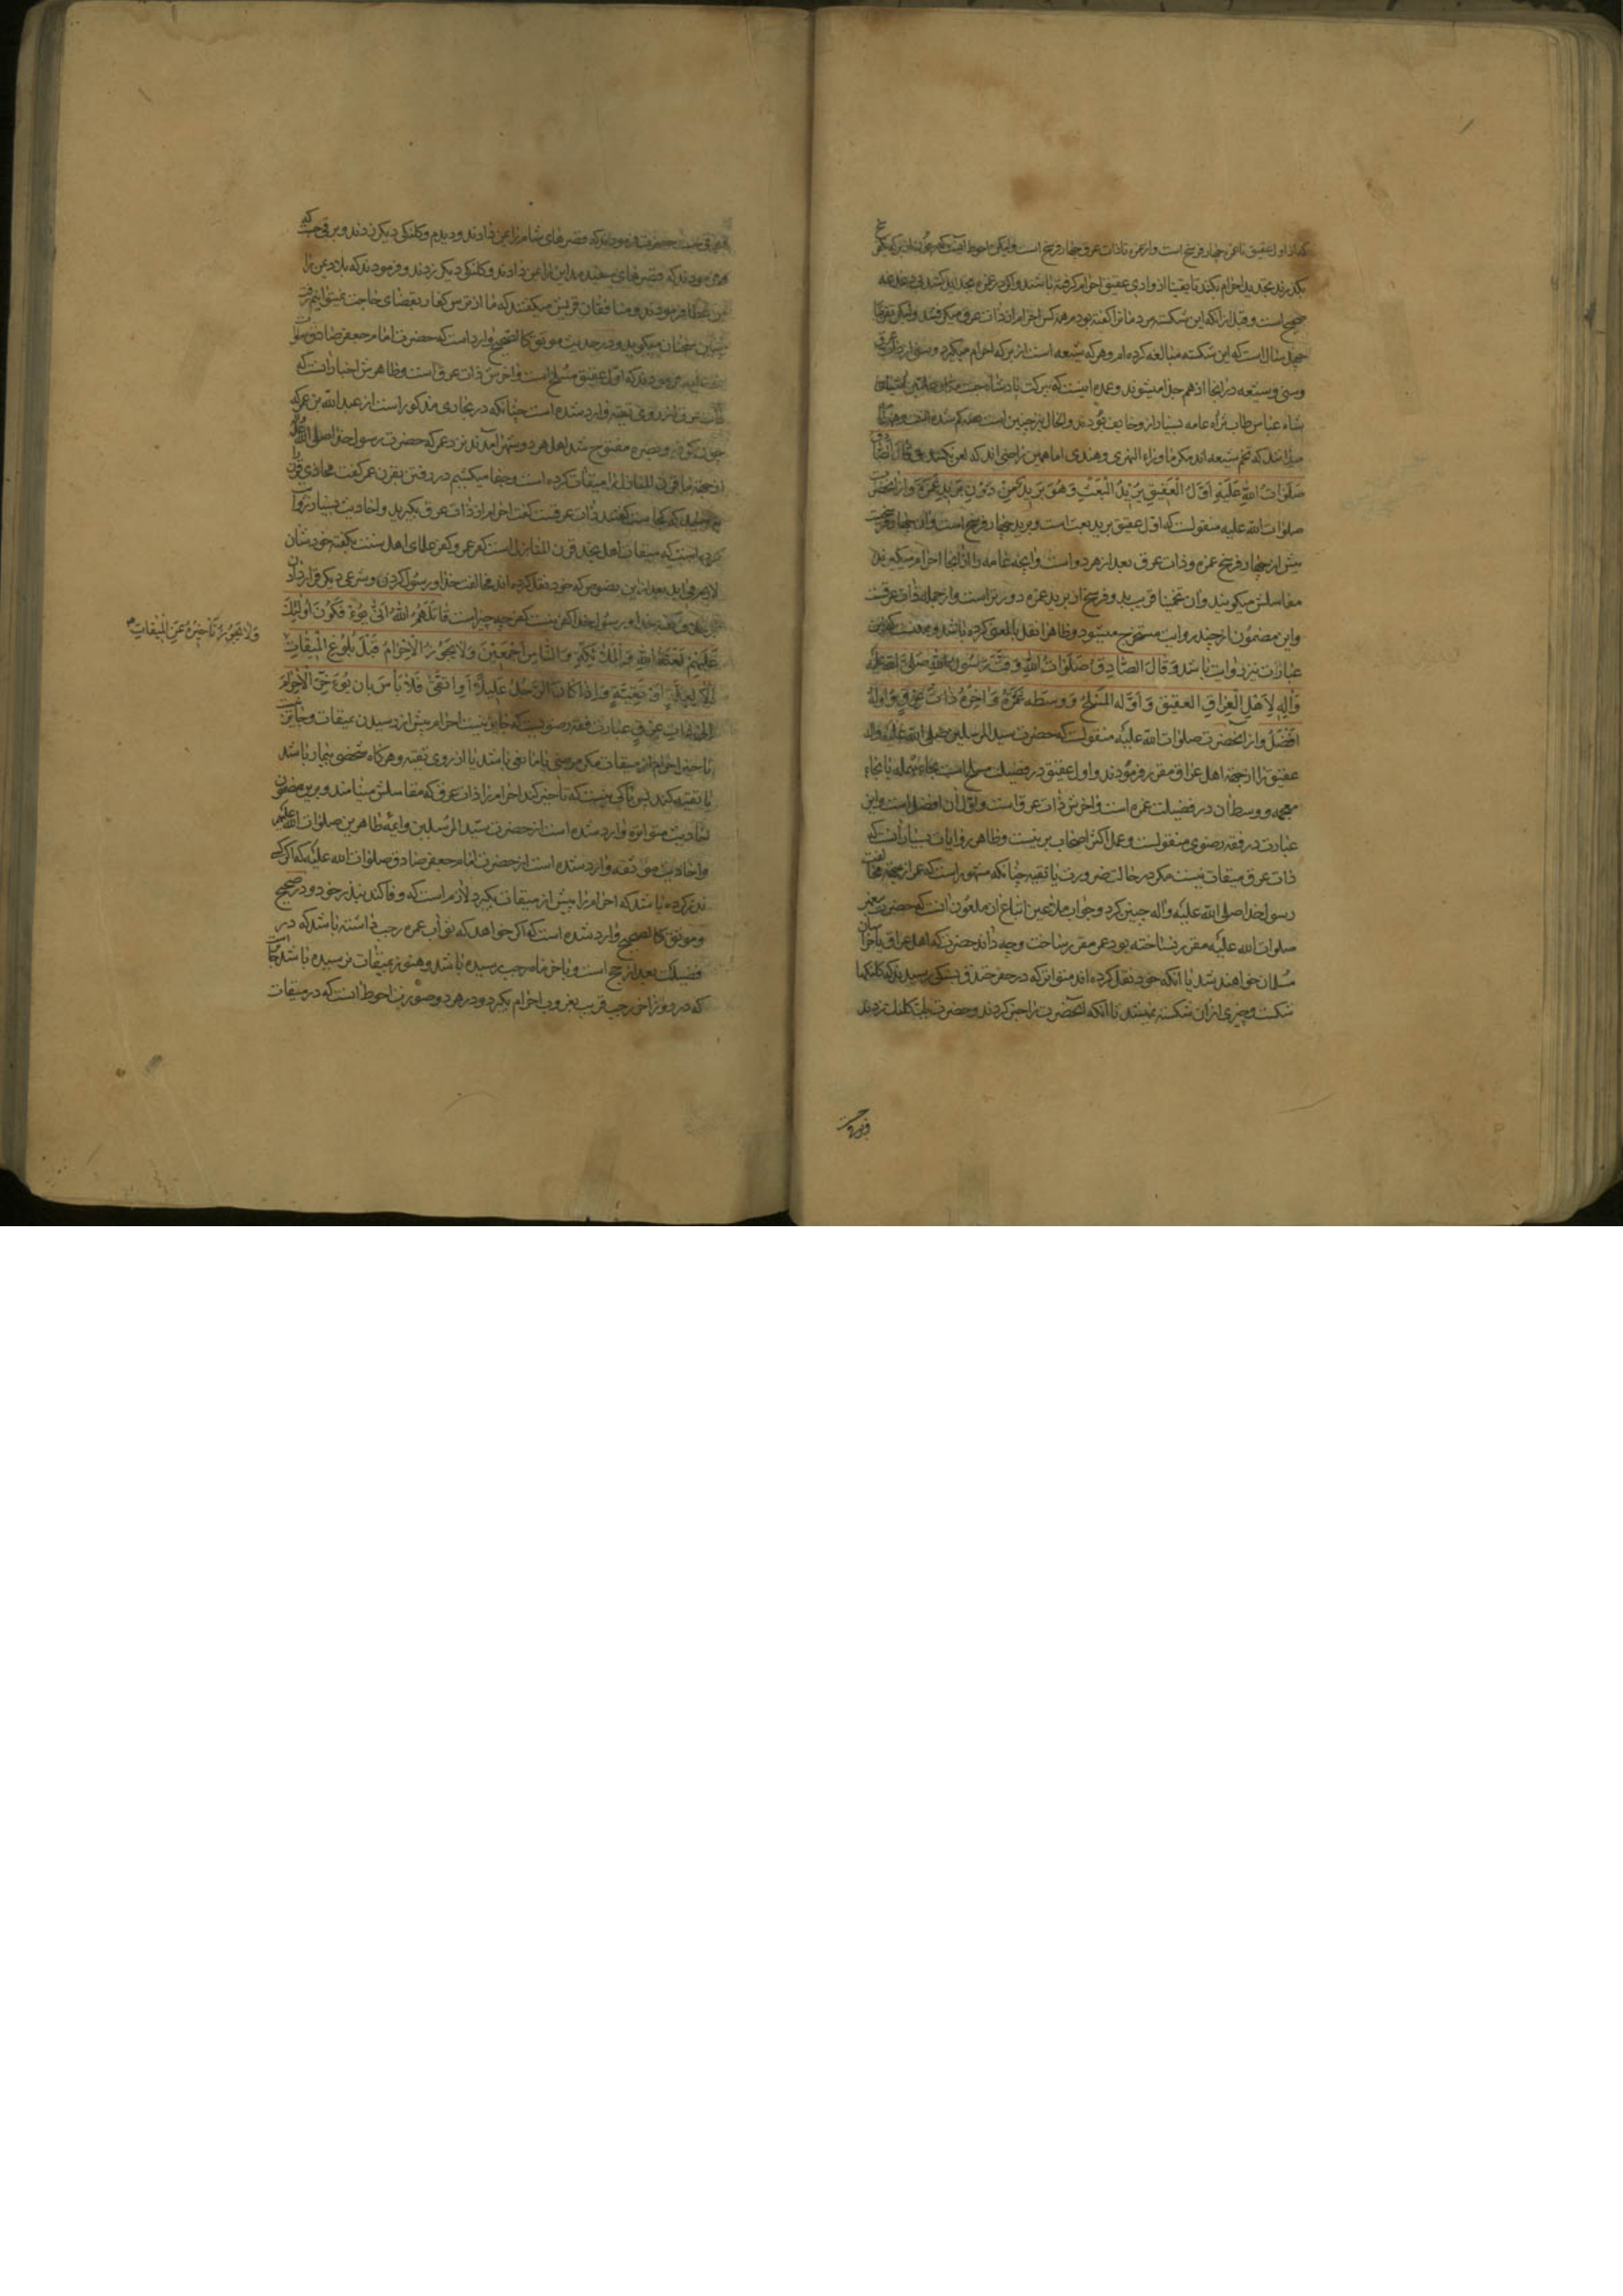 که از اول عقیق تا غمره چهار فرسخ است و از غمره تا ذات عرق چهار فرسخ است ولیکن احوط آنست که
بگذرند تجدید احرام بکند تا یقینا از وادی عقیق احرام گرفته باشند و اگر در غمره مجددا بکنند بی دغدغه
صحیح است و قبل از آنکه این شکسته مردمان را گفته بودم همه کس احرام از ذات عرق میگرفتند ولیکن تقریبا
چهل سال است که این شکسته مبالغه کرده ام و هر که شیعه است از برکه احرام میگیرد و سنی از ذات عرق
و سنی و شیعه در اینجا از هم جدا میشوند و عمده اینست که ببرکت پادشاه جنت مکان
شاه عباس طاب ثراه عامه بسیار از و خایف بودند و الحال نیز چنین است
میباشد که تخم شیعه اند مگر ما وراء النهری و هندی اما همین راضی اند که لعن نکنند و قال ایضا
صَلَوَاتُ اللّهِ عَلَیْهِ اَوَّلُ الْعَقِیقِ بَرِیْدُ الْبَعْثِ وَهُوَ بَرِیدٌ مِنْ دُونِ بَرِیدِ غَمْرَةَ و از آنحضرت
صلوات الله علیه منقولست که اول عقیق برید بعث است و برید چهار فرسخ است و آن چهار فرسخست
پیش از چهار فرسخ غمره و ذات عرق بعد از هر دو است و آنچه عامه از آنجا احرام میگیرند
مفاسلش میگویند و آن تخمینا قریب بدو فرسخ از برید غمره دورتر است و از جمله ذات عرقست
و این مضمون از چند روایت مستخرج میشود و ظاهرا نقل بالمعنی کرده باشد و ممکنست که این
عبارات نیز روایت باشد وَ قَالَ الصَّادِقُ صَلَوَاتُ اللّهِ وَقَّتَ رَسُولُ اللّهِ صَلَّی اللّه عَلَیْهِ
وَآلِهِ لِاَهْلِ الْعِرَاقِ الْعَقِیقَ وَ اَوَّلُه الْمَسْلَخُ وَ وَسَطُه غَمْرَةُ وَ اخِرُهُ ذَاتُ عِرْقٍ وَ اَوَّلُهُ
اَفْضَلُ و از آنحضرت صلوات الله علیه منقولست که حضرت سید المرسلین صلی الله علیه و آله
عقیق را از جهة اهل عراق مقرر فرمودند و اول عقیق در فضیلت مسلخ است بحاء مهمله یا بخاء
معجمه و وسط آن در فضیلت غمره است و آخرش ذات عرق است و اول آن افضل است و این
عبارت در فقه رضوی منقولست و عمل اکثر اصحاب برینست و ظاهر روایات بسیار آنست که
ذات عرق میقات نیست مگر در حالت ضرورت یا تقیه چنانکه مشهور است که عمر از جهة مخالفت
رسول خدا صلی الله علیه و آله چنین کرد و جواب ملاعین اتباع آن ملعون آنست که حضرت پیغمبر
صلوات الله علیه مقرر نساخته بود عمر مقرر ساخت و چه داند حضرت که اهل عراق باخر
مسلمان خواهند شد با آنکه خود نقل کرده اند متواتر که در حفر خندق بسنگی رسیدند که کلنگها
شکست و چیزی از آن شکسته نمیشد تا آنکه آنحضرت را خبر کردند و حضرت یک کلنگ زدند
و برقی جست
حضرت فرمودند که قصرهای شام را بمن دادند و دیدم و کلنگی دیگر زدند و برقی جست که
فرمودند که قصرهای سفید مداین را بمن دادند و کلنگی دیگر زدند و فرمودند که بلاد یمن را
بمن عطا فرمودند و منافقان قریش میگفتند که ما از ترس کفار بقضای حاجت نمیتوانیم رفت
سخنان میگوید و در حدیث موثق کالصحیح وارد است که حضرت امام جعفر صادق صلوات
الله علیه فرمودند که اول عقیق مسلخ است و آخرش ذات عرق است و ظاهرش اخبار آنست که
ذات عرق از روی تقیه وارد شده است چنانکه در بخاری مذکور است از عبد الله بن عمر که
چون کوفه و بصره مفتوح شد اهل هر دو شهر آمدند نزد عمر که حضرت رسول خدا صلی الله علیه
از جهة ما قرن المنازل را میقات کرده است و جفا میکشیم در رفتن بقرن عمر گفت محاذی قرن
کجاست گفتند ذات عرقست گفت احرام از ذات عرق بگیرید و احادیث بسیار روایت
کرده است که میقات اهل نجد قرن المنازل است کفر عمر و کفر علمای اهل سنت بگفته خودشان
لازم می آید بعد از این نصوص که خود نقل کرده اند مخالفت خدا و رسول کردن و شرعی دیگر قرار دادن
خدا و رسول خدا کفر نیست کفر چه چیز است قَاتَلَهُمُ اللهُ اَنّی یُؤفَکُونَ اُولئِكَ
عَلَیْهِمْ لَعْنَةُ اللّهِ وَالْمَلٰئِکَةِ وَالنَّاسِ اَجْمَعِیْنَ وَلَا یَجُوزُ الْاِحْرَامُ قَبْلَ بُلُوغِ الْمِیقَاتِ
اِلَّا لِعِلَّةٍ اَوْ تَقِیَّةٍ وَ اِذَا کَانَ الرَّجُلُ عَلِیلًا اَوِ اتَّقَی فَلَا بَأسَ بِاَن یُؤَخِّرَ الْاِحْرَامَ
اِلَی ذَاتِ عِرْقٍ عبارت فقه رضویست که جایز نیست احرام پیش از رسیدن بمیقات و جایز نیست
تاخیر احرام از میقات مگر مرضی یا مانعی باشد یا از روی تقیه و هر گاه شخصی بیمار باشد
یا تقیه کند پس باکی نیست که تاخیر کند احرام را تا ذات عرق که مفاسلش مینامند و برین مضمون
احادیث متواتره وارد شده است از حضرت سید المرسلین و ائمه طاهرین صلوات الله علیهم
و احادیث موثقه وارد شده است از حضرت امام جعفر صادق صلوات الله علیه که اگر کسی
نذر کرده باشد که احرام را پیش از میقات بگیرد لازم است که وفا کند بنذر خود و در صحیح
و موثق کالصحیح وارد شده است که اگر خواهد که ثواب عمره رجب داشته باشد که در
فضیلت بعد از حج است و باخر ماه رجب رسیده باشد و هنوز بمیقات نرسیده باشد
که در روز آخر رجب قریب بغروب احرام بگیرد و در هر دو صورت احوط آنست که در میقات
وَلَا یَجُوزُ تَاْخِیْرُهُ عَنِ الْمِیقَاتِ